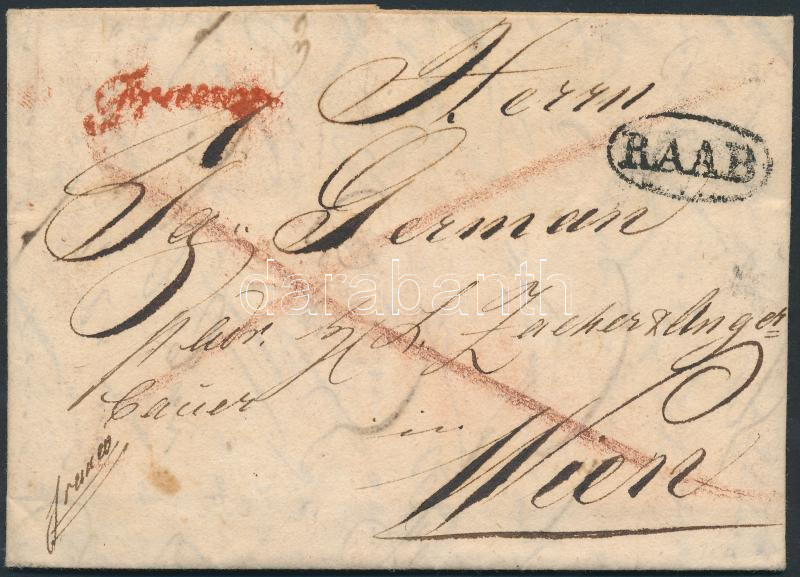 Franco
Herrn
RAAB
Ig: German
darabanth
Zacher & Anger=
bauer
in
Wien
franco